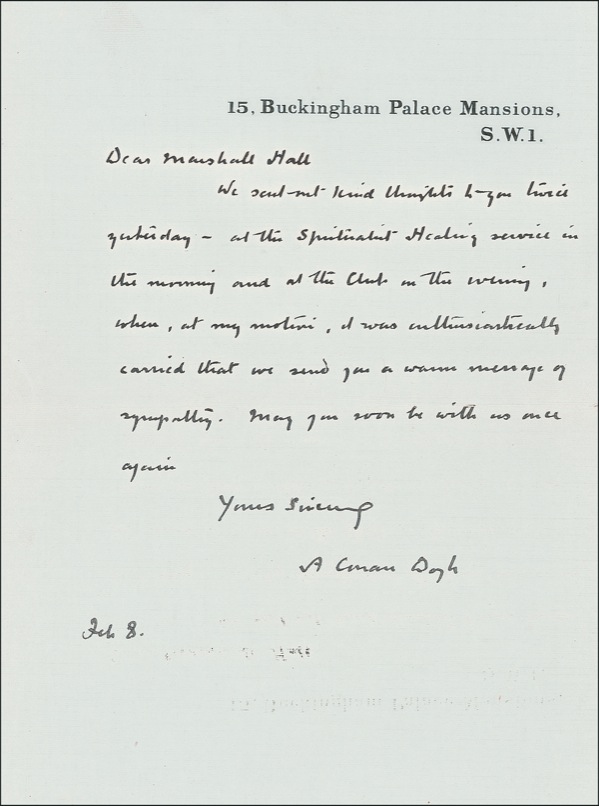 15, Buckingham Palace Mansions,
S.W.1.
Dear Marshall Hall
We sent out kind thoughts to you twice
yesterday – at the Spiritualist Healing service in
the morning and at the Club in the evening,
when, at my motion, it was enthusiastically
carried that we send you a warm message of
sympathy. May you soon be with us once
again
Yours Sincerely
A Conan Doyle
Feb 8.
15, Buckingham Palace Mansions,